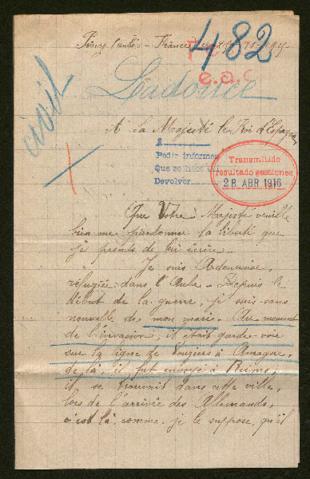 482
e.a.c
Ladouce
civil
A Sa Majesté le Roi d'Espagne
Pedir informes
Que se
Devolver
Transmitido
resultado gestiones
28 ABR 1916
Que Votre Majesté veuille
bien me pardonner la liberté que
je prends de lui écrire.
Je suis Ardennaise,
réfugiée dans l'Aube. Depuis le
début de la guerre, je suis sans
nouvelle de mon mari. Au moment
de l'invasion, il était garde-voie
sur la ligne de Vouziers à Amagne
de là, il fut envoyé à Reims,
il se trouvait dans cette ville,
lors de l'arrivée des Allemands,
c'est là, comme je le suppose, qu'il